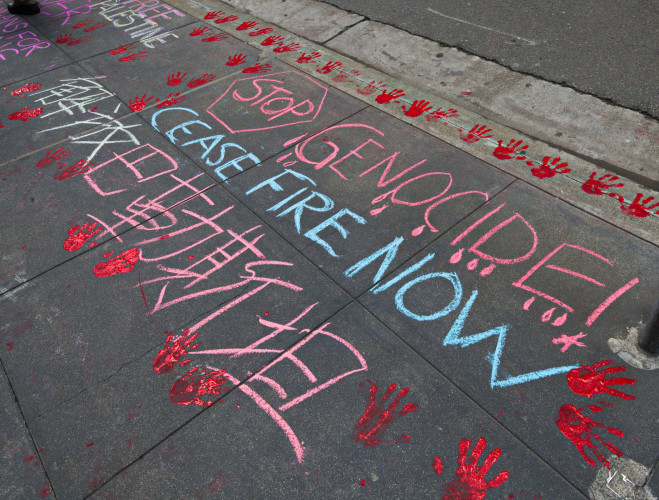 FREE
PALESTINE
FOR
STOP
GENOCIDE!
CEASE FIRE NOW
解放
巴勒斯坦